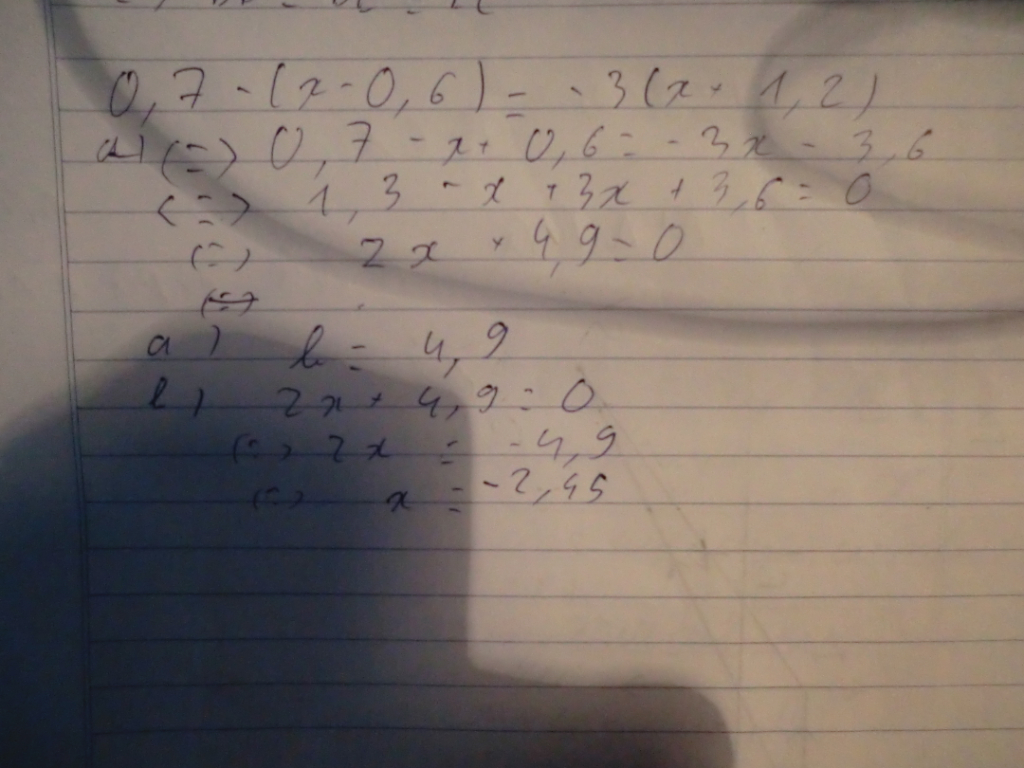 0,7 - (x - 0,6) = -3(x + 1,2)
a) (=) 0,7 - x + 0,6 = -3x - 3,6
<=> 1,3 - x + 3x + 3,6 = 0
(=) 2x + 4,9 = 0
a) b = 4,9
b) 2x + 4,9 = 0
(=) 2x = -4,9
(=) x = -2,45